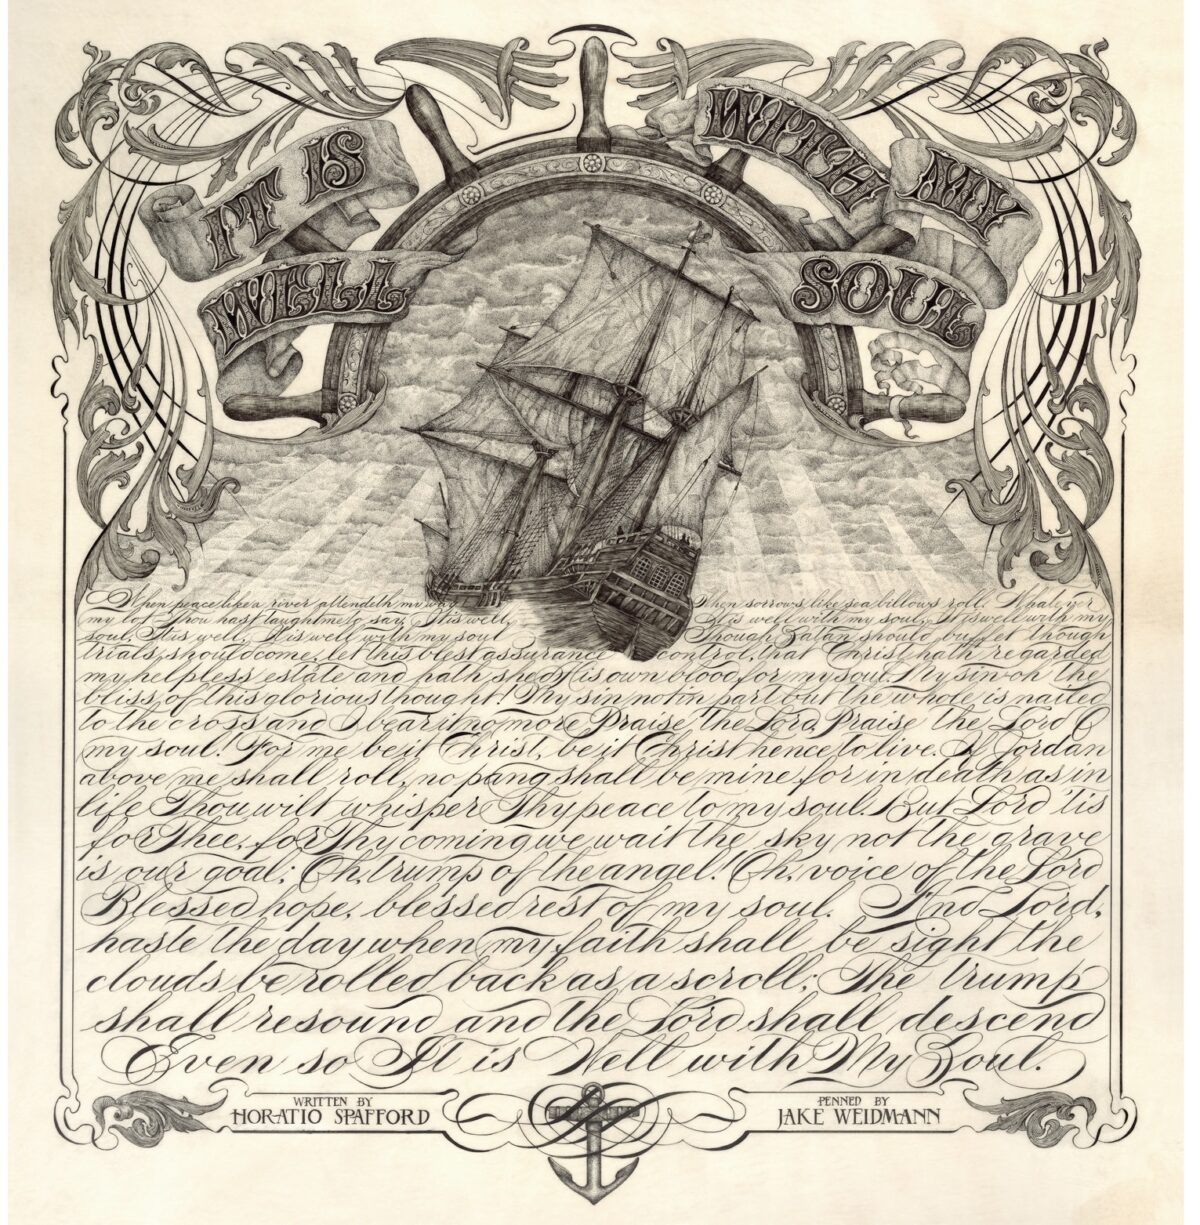 IT IS
WELL
WITH MY
SOUL
When peace like a river attendeth my way When sorrows like sea billows roll. Whate'er
my lot Thou hast taught me to say, It is well, It is well with my soul, It is well with my
soul, It is well, It is well with my soul Though Satan should buffet though
trials should come, let this blest assurance control, that Christ hath regarded
my helpless estate and hath shed His own blood for my soul. My sin-oh the
bliss of this glorious thought! My sin not in part but the whole is nailed
to the cross and I bear it no more Praise the Lord, Praise the Lord O
my soul! For me be it Christ, be it Christ hence to live. If Jordan
above me shall roll, no pang shall be mine for in death as in
life Thou wilt whisper Thy peace to my soul. But Lord 'tis
for Thee, for Thy coming we wait the sky not the grave
is our goal; Oh, trump of the angel! Oh, voice of the Lord
Blessed hope, blessed rest of my soul. And Lord,
haste the day when my faith shall be sight the
clouds be rolled back as a scroll; The trump
shall resound and the Lord shall descend
Even so It is Well with My Soul.
WRITTEN BY
HORATIO SPAFFORD
PENNED BY
JAKE WEIDMANN